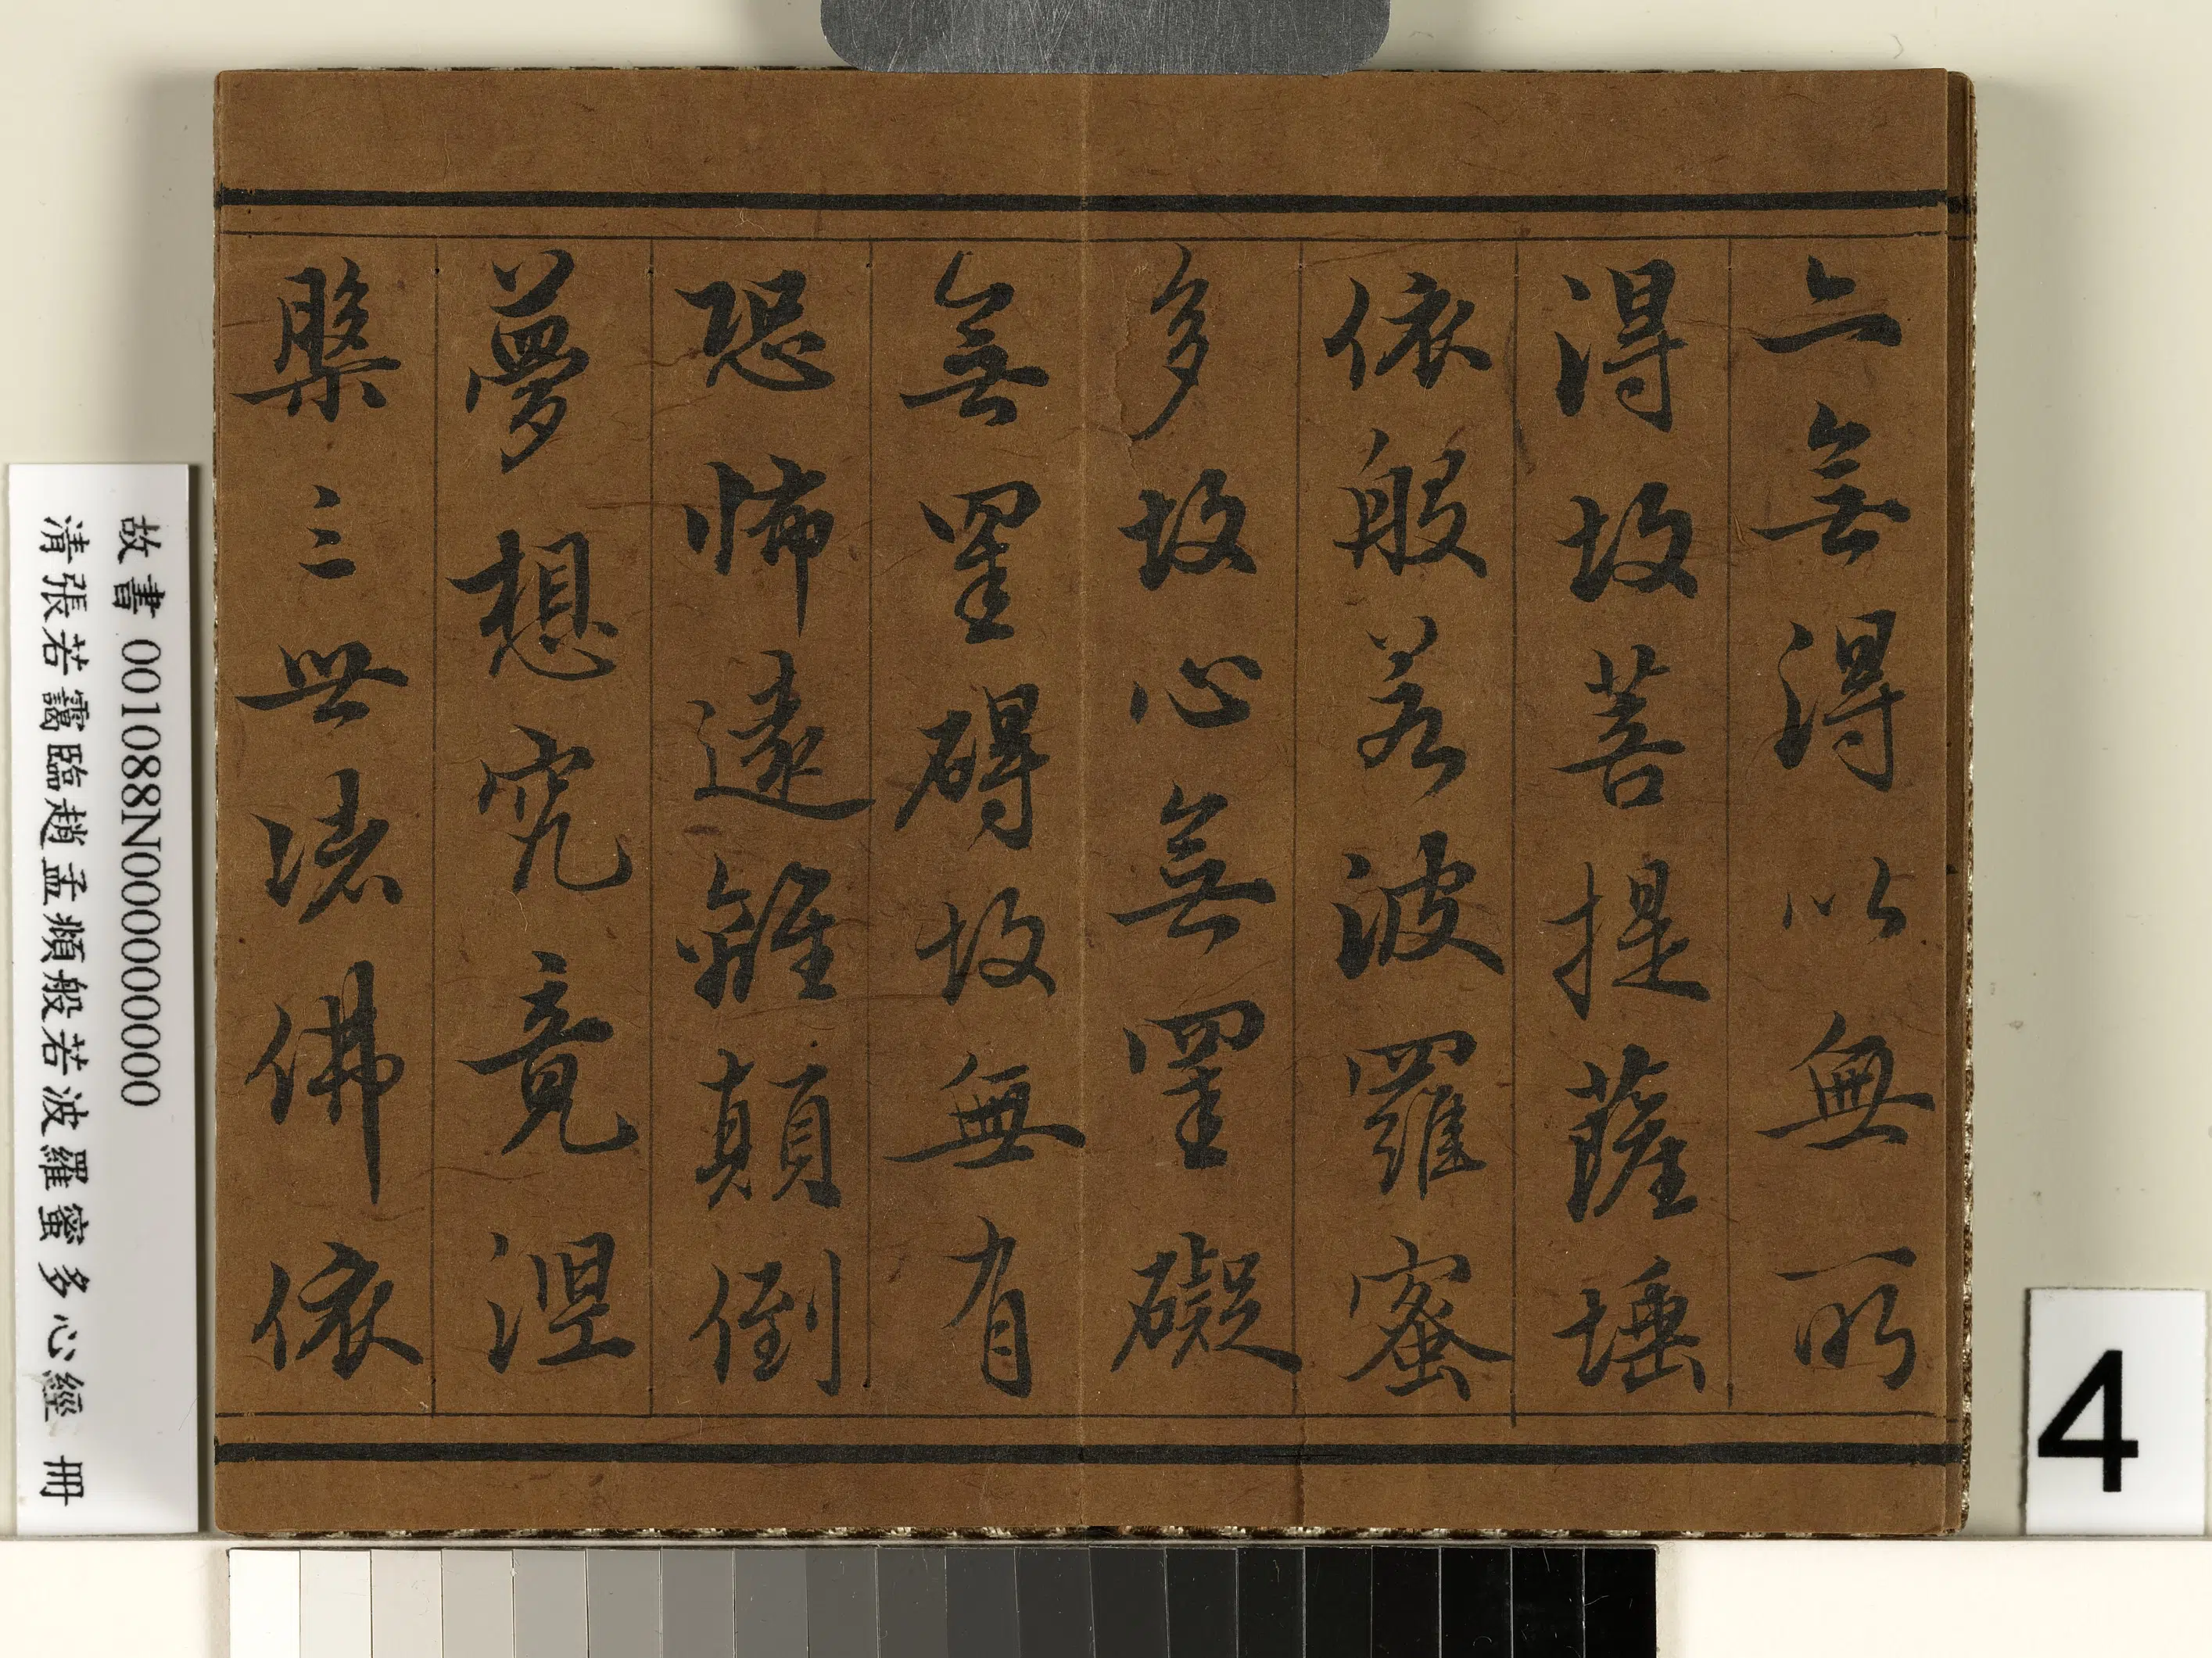 亦無得以無所
得故菩提薩埵
依般若波羅蜜
多故心無罣礙
無罣碍故無有
恐怖遠離顛倒
夢想究竟涅
槃三世諸佛依
故書 001088N000000000
清張若靄臨趙孟頫般若波羅蜜多心經 冊
4